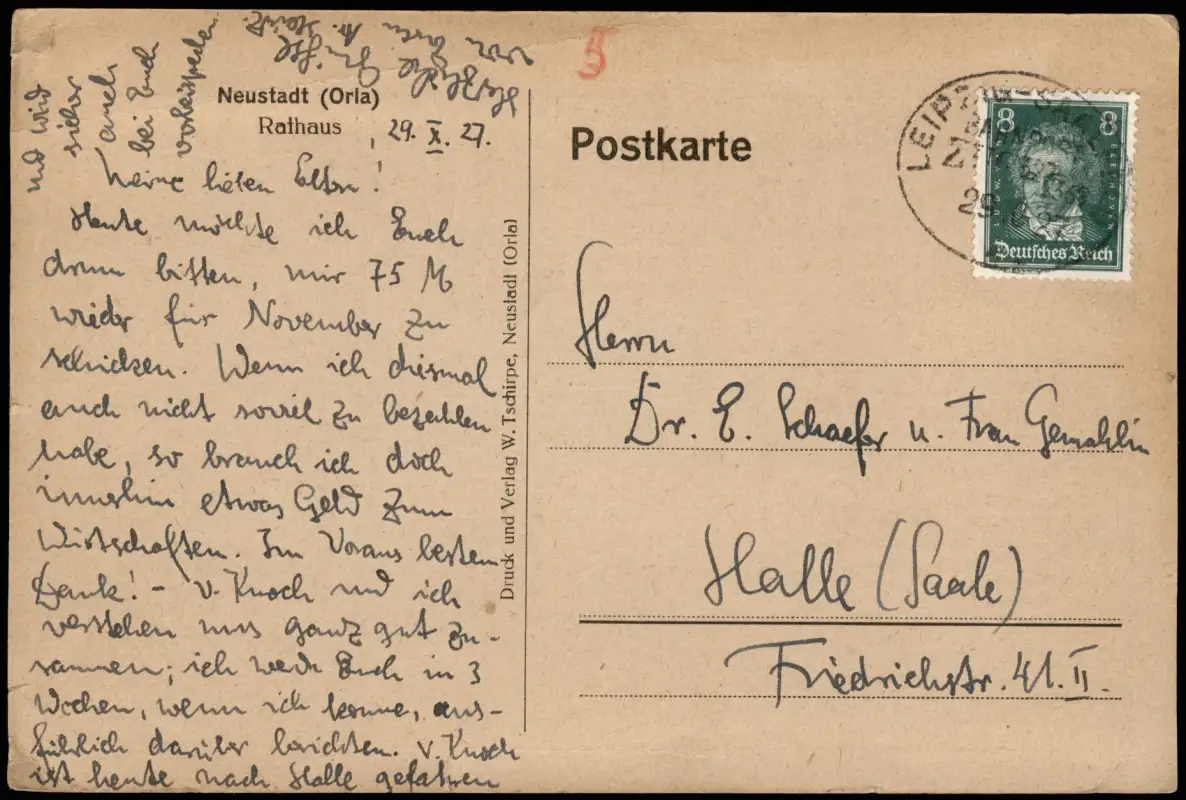 Neustadt (Orla)
Rathaus
, 29. X. 27.
Meine lieben Eltern!
Heute möchte ich Euch
drum bitten, mir 75 M
wieder für November zu
schicken. Wenn ich diesmal
auch nicht soviel zu bezahlen
habe, so brauch ich doch
immerhin etwas Geld zum
Wirtschaften. Im Voraus besten
Dank! - v. Knoch und ich
verstehen uns ganz gut zu-
sammen; ich werde Euch in 3
Wochen, wenn ich komme, aus-
führlich darüber berichten. v. Knoch
ist heute nach Halle gefahren
und wird
sicher
auch
bei Euch
vorbeispechen
Herzliche Grüße
von Eurem
Druck und Verlag W. Tschirpe, Neustadt (Orla)
5
Postkarte
LEIPZIG
29
8 8
Deutsches Reich
Herrn
Dr. E. Schaefer u. Frau Gemahlin
Halle (Saale)
Friedrichstr. 41. II.